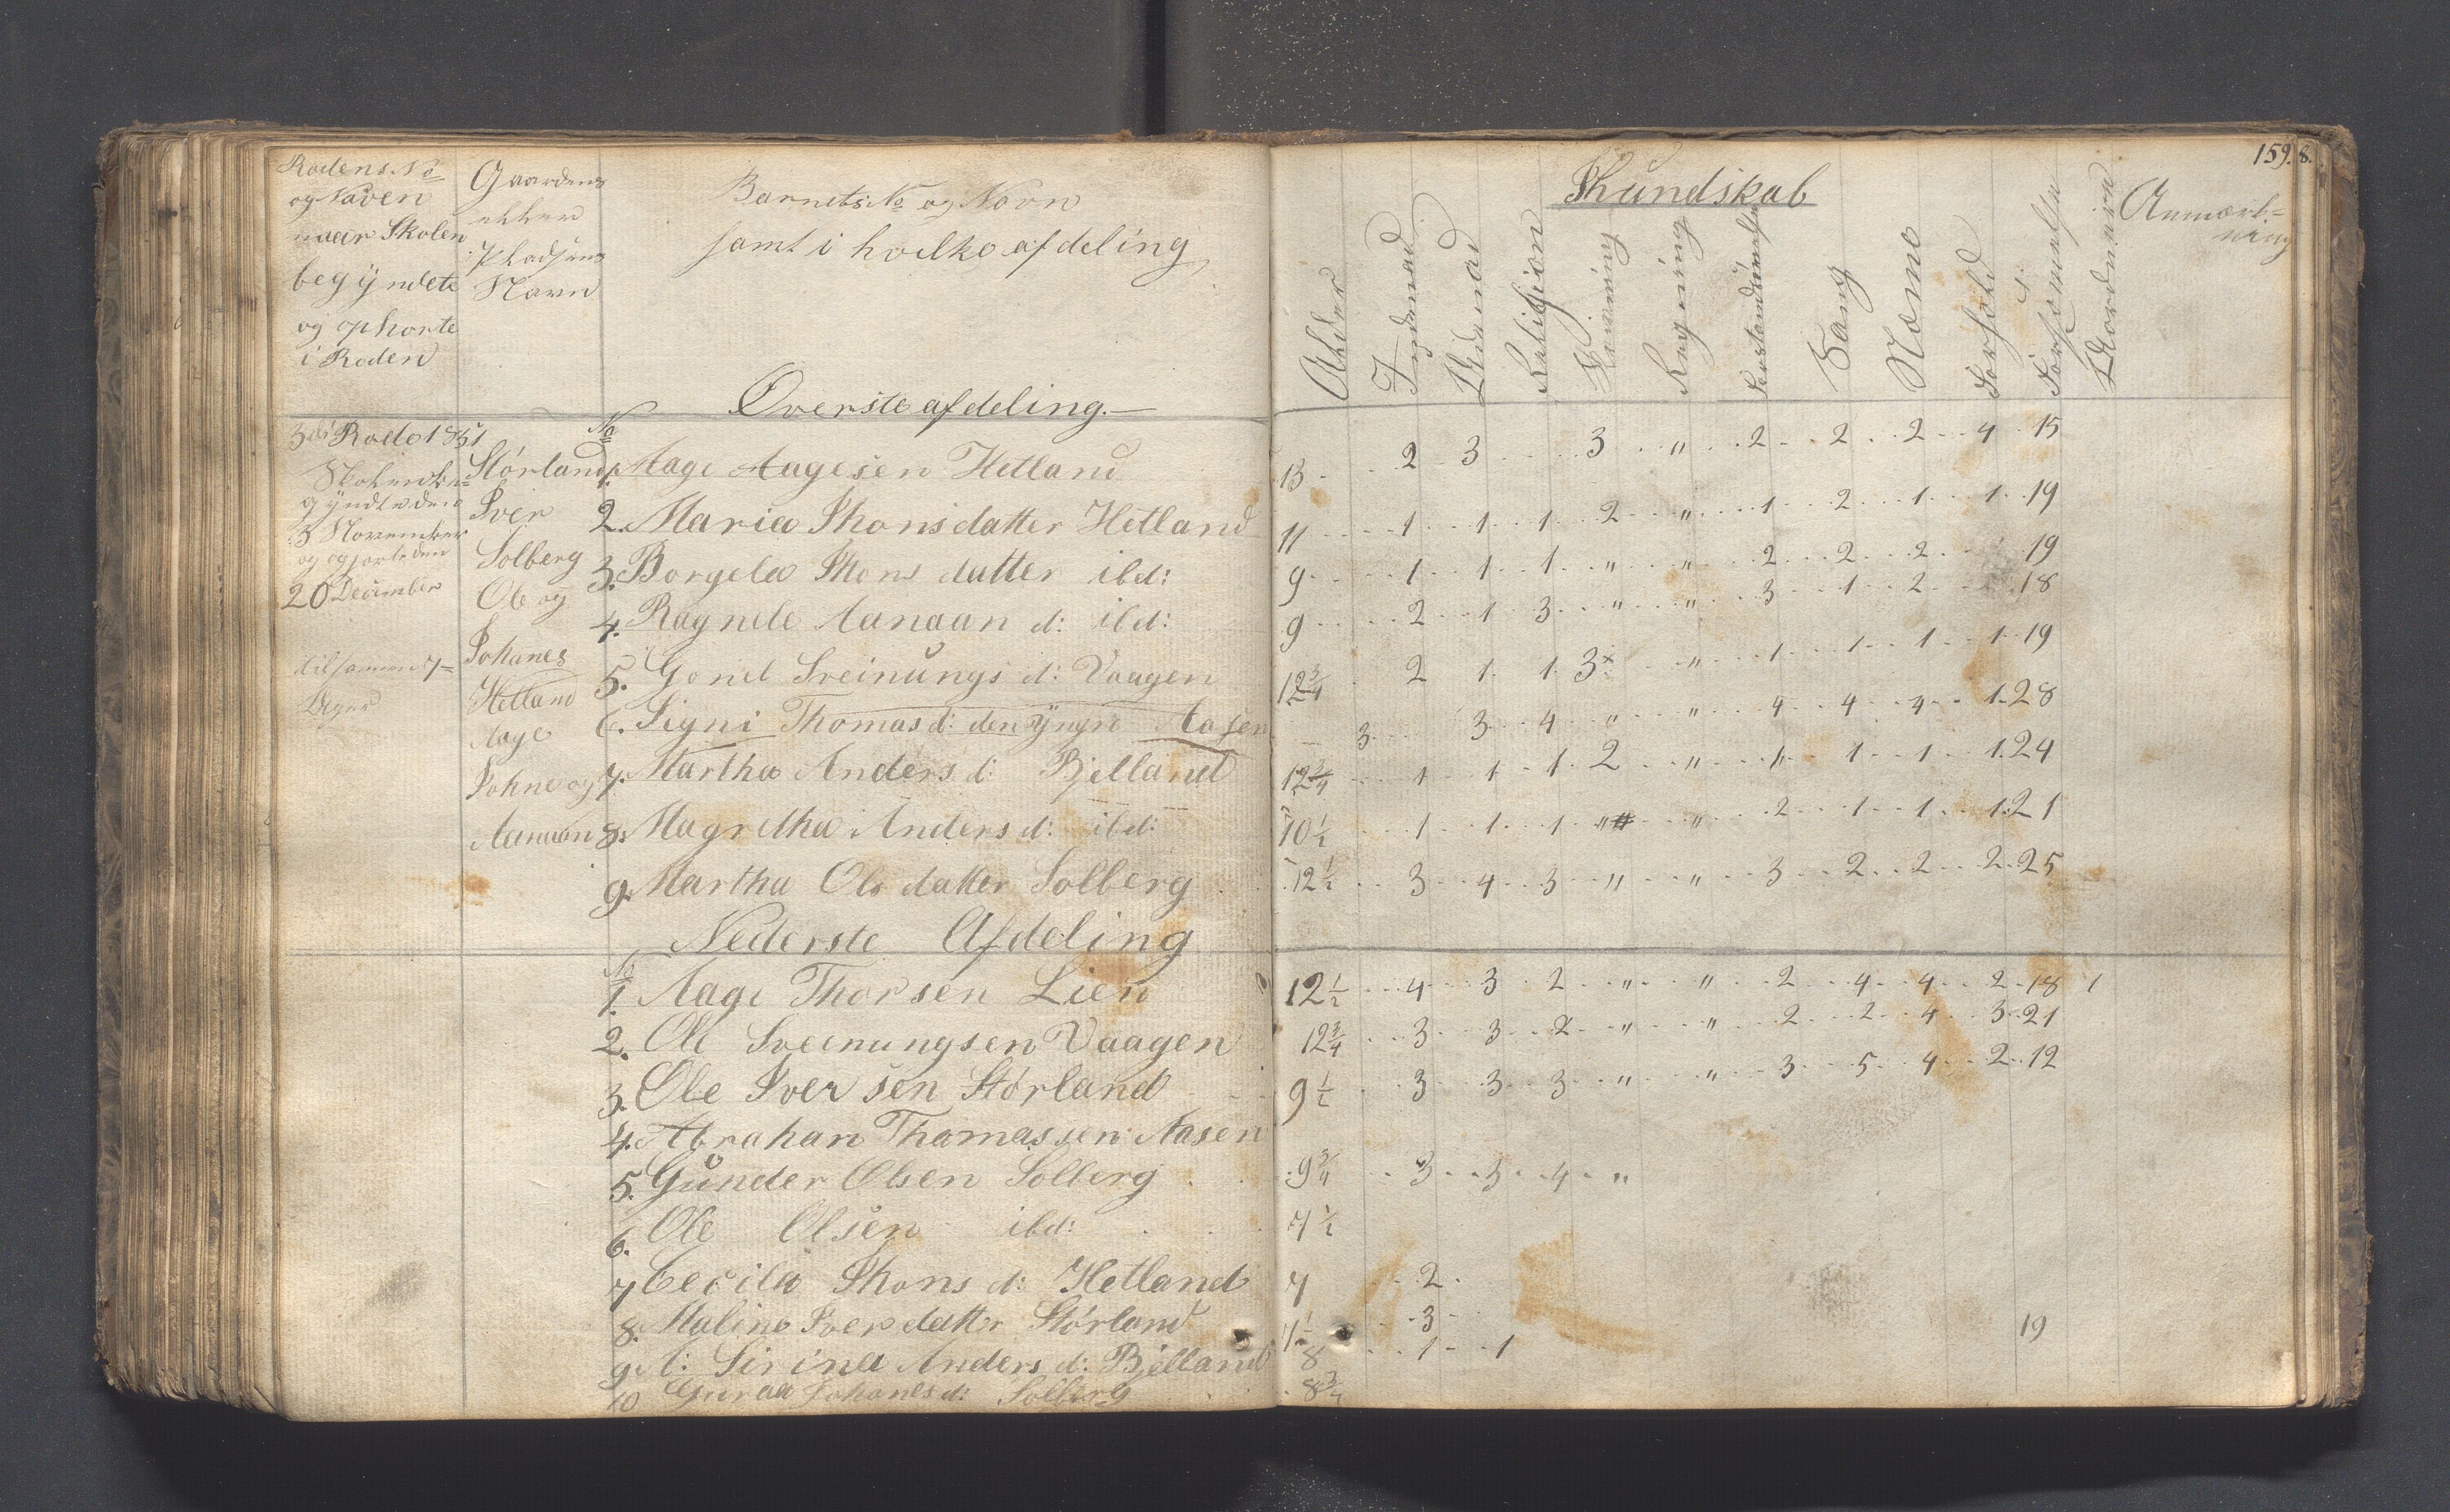 Rodens No
og Naven
naar Skolen
begÿndete
og ophorte
i Roden
Gaardens
ehher
Phadsens
Navn
Barnets No og Navn
samt i hvelke afdeling
Overste afdeling.—
3die Rode 1851
gÿndte den
3 November
og ogjorte den
20 December
tilsammen 7-
Størland
Iver
Solberg
Ole og
Johanes
Hetland
Aage
Johne og
Aanaan
No
1. Aage Aagesen Hetland
2. Maria Thonsdatter Hetland
3. Borgela Thons datter ibd:
4. Ragnele Aanaan d: ibd:
5. Gonel Sveinungs d: Vaagen
6. Signi Thomas d: den ÿngre Aasen
7. Martha Anders d: Bjelland
8. Magretha Anders d: ibd:
9. Martha Ols datter Solberg
Nederste Afdeling
No
1. Aage Thorsen Lien
2. Ole Sveinungsen Vaagen
3. Ole Iversen Størland
4. Abrahan Thomassen Aasen
5. Gunder Olsen Solberg
6. Ole Olsen ibd:
7 Cecila Thons d: Hetland
8. Maline Iversdatter Størland
9. A: Sirina Anders d: Bjelland
10 Guraa Johanes d: Solberg
159. 8.
Khundskab
Ahder
Indenad
Udenad
Relihjion
Skrivning
Regning
Forstandsøvelse
Sang
Næme
Forhold
Forsømelse
Anmærk=
ning
13 2 3 3 " 2 2 2 4 15
11 1 1 1 2 " 1 2 1 1 19
9 1 1 1 " " 2 2 2 19
9 2 1 3 " " 3 1 2 18
12 3/4 2 1 1 3 " 1 1 1 1 19
3 3 4 " " 4 4 4 1 28
12 3/4 1 1 1 2 " 1 1 1 1 24
10 1/2 1 1 1 " " 2 1 1 1 21
12 1/2 3 4 3 " " 3 2 2 2 25
12 1/2 4 3 2 " " 2 4 4 2 18 1
12 3/4 3 3 2 " " 2 2 4 3 21
9 1/2 3 3 3 " " 3 5 4 2 12
9 3/4 3 3 4 "
7 1/2
7 2
7 1/2 3 19
8 1 1
8 3/4